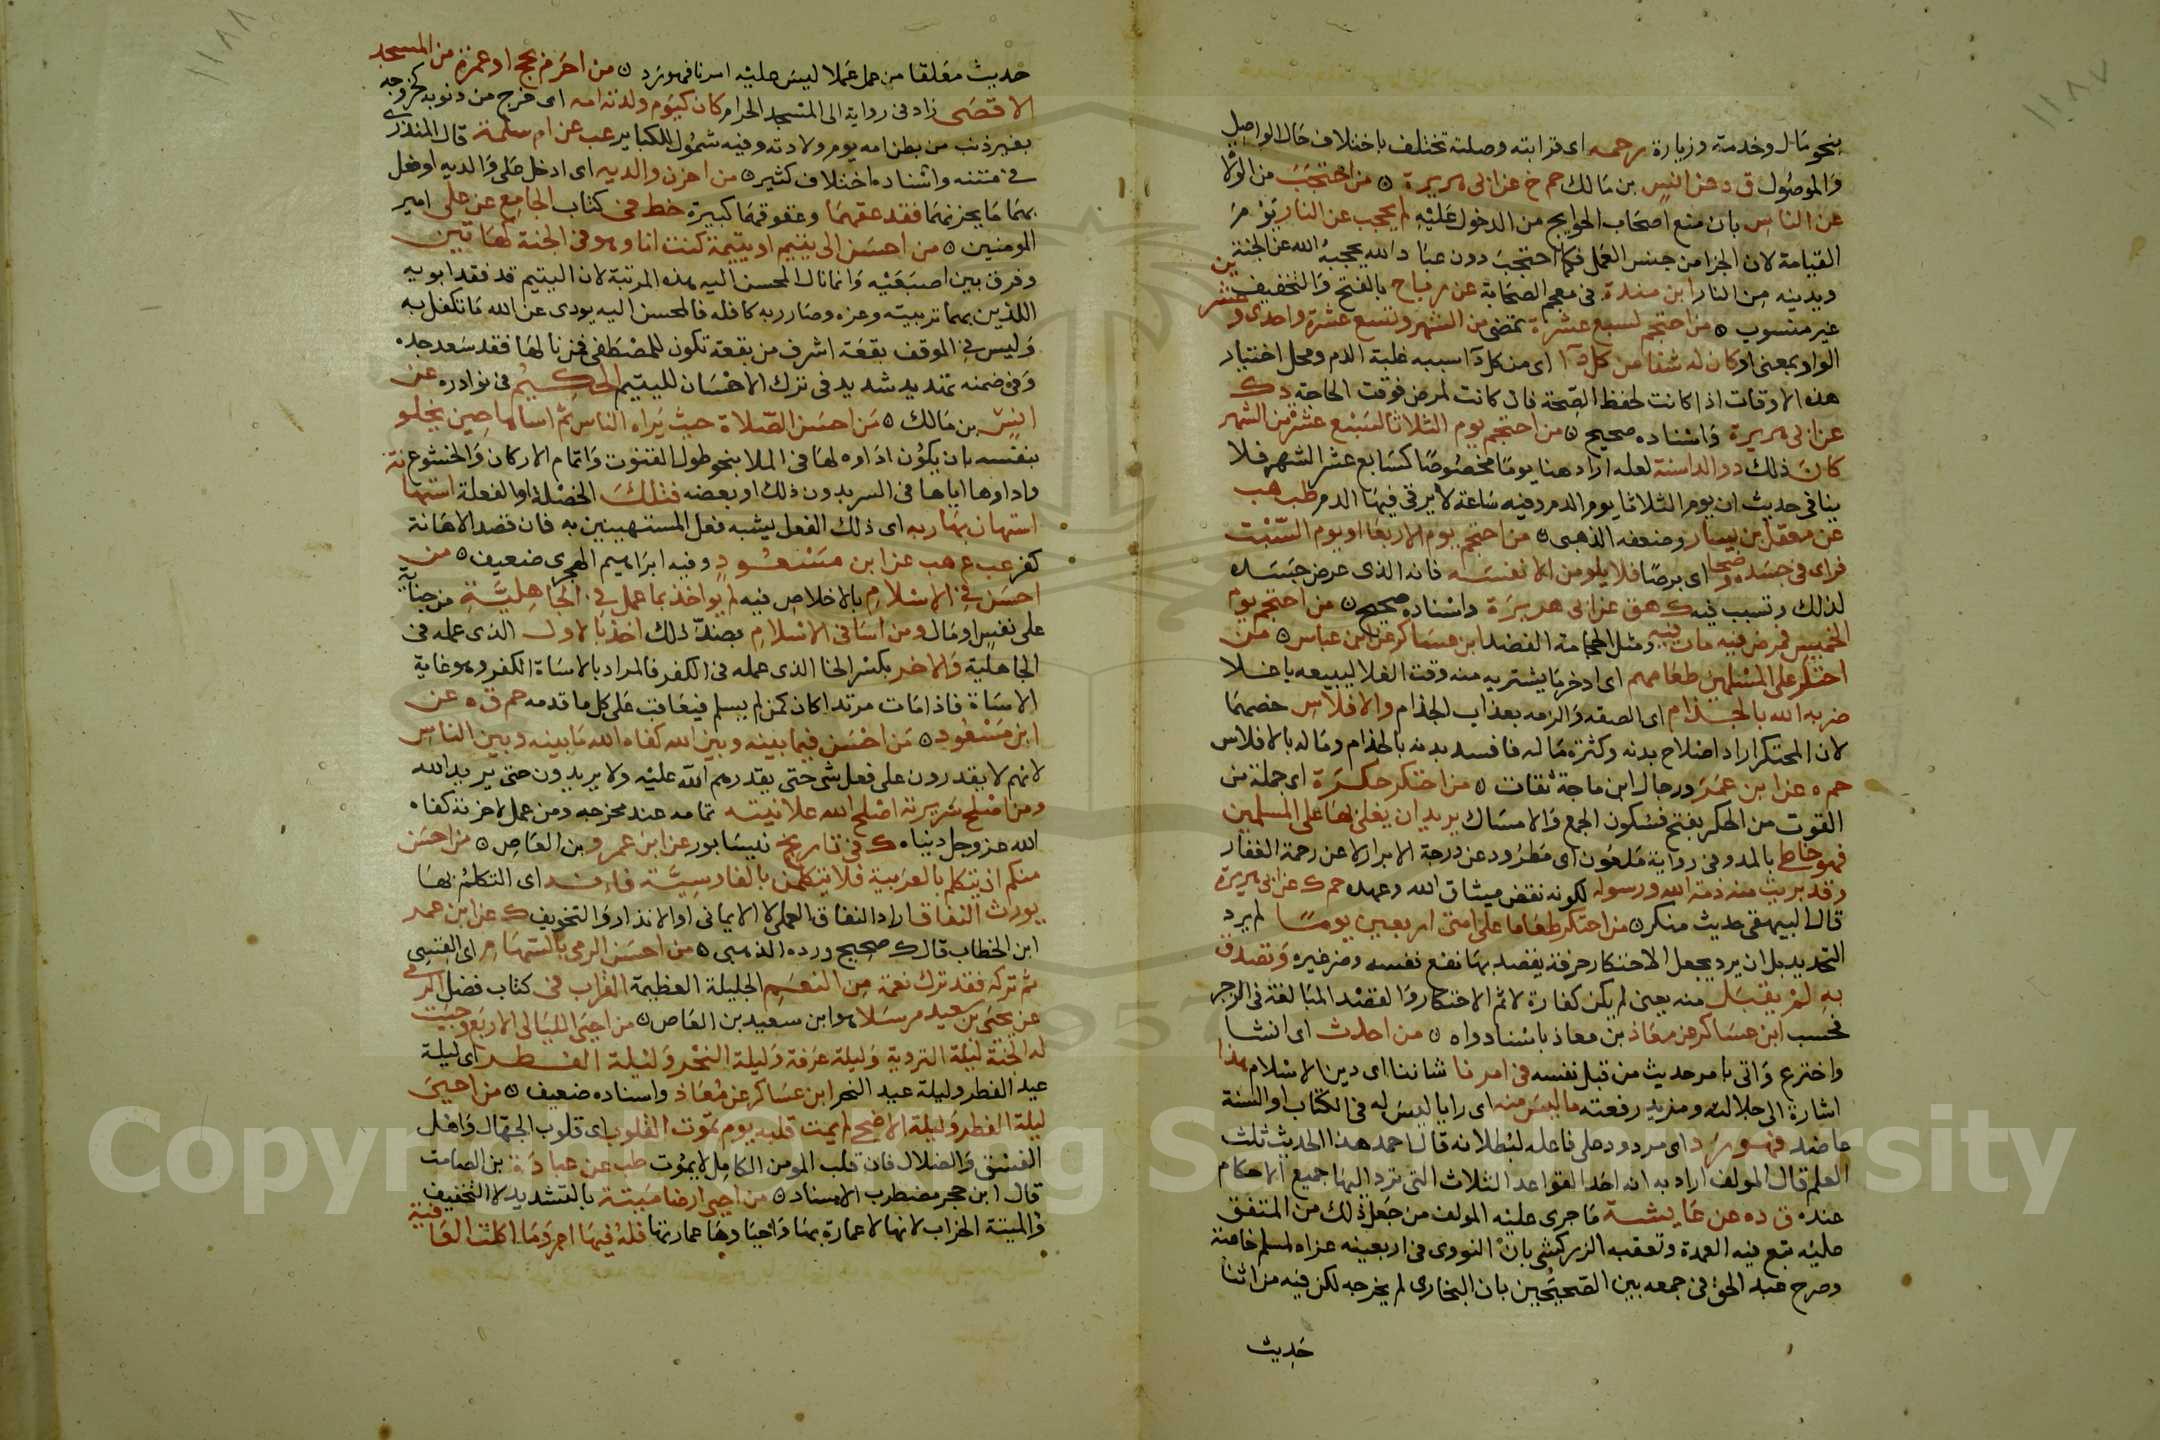 ١١٨٧
بنحو مال وخدمة وزيارة رحمه اى قرابته وصلته تختلف باختلاف حال الواصل
والموصول ق د عن انس بن مالك حم خ عن ابى هريرة ٥ من احتجب من الولاة
عن الناس بان منع اصحاب الحوايج من الدخول عليه لم يحجب عن النار يوم
القيامة لان الجزا من جنس العمل فكما احتجب دون عباد الله يحجبه الله عن الجنة
ويدينه من النار ابن مندة فى معجم الصحابة عن رباح بالفتح والتخفيف
غير منسوب ٥ من احتجم لسبع عشرة تمضى من الشهر وتسع عشرة واحدى وعشرين
الواو بمعنى او كان له شفا من كل دآ اى من كل دآ سببه غلبة الدم ومحل اختيار
هذه الاوقات اذا كانت لحفظ الصحة فان كانت لمرض فوقت الحاجة د ك
عن ابى هريرة واسناده صحيح ٥ من احتجم يوم الثلاثا لسبع عشرة من الشهر
كان ذلك دوا لداسنة لعله اراد هنا يوما مخصوصا كسابع عشر الشهر فلا
ينافى حديث ان يوم الثلاثا يوم الدم وفيه ساعة لا يرقى فيها الدم طب هب
عن معقل بن يسار وضعفه الذهبى ٥ من احتجم يوم الاربعا او يوم السبت
فراى فى جسده وضحا اى برصا فلا يلومن الا نفسه فانه الذى عرض جسده
لذلك وتسبب فيه ك هق عن ابى هريرة واسناده صحيح ٥ من احتجم يوم
الخميس فمرض فيه مات فيه ومثل الحجامة الفصد ابن عساكر عن ابن عباس ٥ من
احتكر على المسلمين طعامهم اى ادخر ما يشتريه منه وقت الغلا ليبيعه باغلا
ضربه الله بالجذام اى الصقه والزمه بعذاب الجذام والافلاس خصهما
لان المحتكر اراد اصلاح بدنه وكثرة ماله فافسد بدنه بالجذام وماله بالافلاس
حم ه عن ابن عمر ورجال ابن ماجة ثقات ٥ من احتكر حكرة اى جملة من
القوت من الحكر بفتح فسكون الجمع والامساك يريد ان يغلى بها على المسلمين
فهو خاطئ بالمد وفى رواية ملعون اى مطرود عن درجة الابرار لا عن رحمة الغفار
وقد بريت منه ذمة الله ورسوله لكونه نقض ميثاق الله وعهده حم ك عن ابى هريرة
قال البيهقى حديث منكر ٥ من احتكر طعاما على امتى اربعين يوما لم يرد
التحديد بل ان يرد يجعل الاحتكار حرفة يقصد بها نفع نفسه وضر غيره وتصدق
به لم يقبل منه يعنى لم يكن كفارة لاثم الاحتكار والقصد المبالغة فى الزجر
فحسب ابن عساكر عن معاذ بن معاذ باسناد واه ٥ من احدث اى انشا
واخترع واتى بامر حديث من قبل نفسه فى امرنا شاننا اى دين الاسلام هذا
اشارة الى جلالته ومزيد رفعته ما ليس منه اى رايا ليس له فى الكتاب او السنة
عاضد فهو رد اى مردود على فاعله لبطلانه قال احمد هذا الحديث ثلث
العلم قال المولف اراد به انه احد القواعد الثلاث التى ترد اليها جميع الاحكام
عنده ق د ه عن عايشة ما جرى عليه المولف من جعل ذلك من المتفق
عليه تبع فيه العمدة وتعقبه الزركشى بان النووى فى اربعينه عزاه لمسلم خاصة
وصرح عبد الحق فى جمعه بين الصحيحين بان البخارى لم يخرجه لكن فيه من اثنا
حديث
١١٨٨
حديث معلقا من عمل عملا ليس عليه امرنا فهو رد ٥ من احرم بحج او عمرة من المسجد
الاقصى زاد فى رواية الى المسجد الحرام كان كيوم ولدته امه اى خرج من ذنوبه كخروجه
بغير ذنب من بطن امه يوم ولادته وفيه شمول للكباير عب عن ام سلمة قال المنذرى
فى متنه واسناده اختلاف كثير ٥ من احزن والديه اى ادخل على والديه او فعل
بهما ما يحزنهما فقد عقهما وعقوقهما كبيرة خط فى كتاب الجامع عن على امير
المومنين ٥ من احسن الى يتيم او يتيمة كنت انا وهو فى الجنة كهاتين
وفرق بين اصبعيه وانما نال المحسن اليه هذه المرتبة لان اليتيم قد فقد ابويه
اللذين بهما تربيته وعزه وصار ربه كافله فالمحسن اليه يودى عن الله ما تكفل به
وليس فى الموقف بقعة اشرف من بقعة تكون للمصطفى فمن نالها فقد سعد جده
وفى ضمنه تهديد شديد فى ترك الاحسان لليتيم الحكيم فى نوادره عن
انس بن مالك ٥ من احسن الصلاة حيث يراه الناس ثم اساها حين يخلو
بنفسه بان يكون اداوه لها فى الملا بنحو طول القنوت واتمام الاركان والخشوع
واداوها اياها فى السر بدون ذلك او بعضه فتلك الخصلة او الفعلة استهانة
استهان بها ربه اى ذلك الفعل يشبه فعل المستهينين به فان قصد الاهانة
كفر عب ع هب عن ابن مسعود وفيه ابراهيم الهجرى ضعيف ٥ من
احسن فى الاسلام بالاخلاص فيه لم يواخذ بما عمل فى الجاهلية من جناية
على نفس او مال ومن اسا فى الاسلام بضد ذلك اخذ بالاول الذى عمله فى
الجاهلية والاخر بكسر الخا الذى عمله فى الكفر فالمراد بالاساة الكفر وهو غاية
الاساة فاذا مات مرتدا كان كمن لم يسلم فيعاقب على كل ما قدمه حم ق ه عن
ابن مسعود ٥ من احسن فيما بينه وبين الله كفاه الله ما بينه وبين الناس
لانهم لا يقدرون على فعل شى حتى يقدرهم الله عليه ولا يريدون حتى يريد الله
ومن اصلح سريرته اصلح الله علانيته تمامه عند مخرجه ومن عمل لاخرته كفاه
الله عز وجل دنياه ك فى تاريخ نيسابور عن ابن عمرو بن العاص ٥ من احسن
منكم ان يتكلم بالعربية فلا يتكلمن بالفارسية فانه اى التكلم بها
يورث النفاق اراد النفاق العملى لا الايمانى او الانذار والتخويف ك عن ابن عمر
ابن الخطاب قال ك صحيح ورده الذهبى ٥ من احسن الرمى بالسهام اى القسى
ثم تركه فقد ترك نعمة من النعم الجليلة العظيمة القراب فى كتاب فضل الرمى
عن يحيى بن سعيد مرسلا هو ابن سعيد بن العاص ٥ من احيى الليالى الاربع وجبت
له الجنة ليلة التروية وليلة عرفة وليلة النحر وليلة الفطر اى ليلة
عيد الفطر وليلة عيد النحر ابن عساكر عن معاذ واسناده ضعيف ٥ من احيى
ليلة الفطر وليلة الاضحى لم يمت قلبه يوم تموت القلوب اى قلوب الجهال واهل
الفسق والضلال فان قلب المومن الكامل لا يموت طب عن عبادة بن الصامت
قال ابن حجر مضطرب الاسناد ٥ من احيى ارضا ميتة بالتشديد لا التخفيف
والميتة الخراب لانها لا عمارة بها واحياوها عمارتها فله فيها اجر وما اكلت العافية